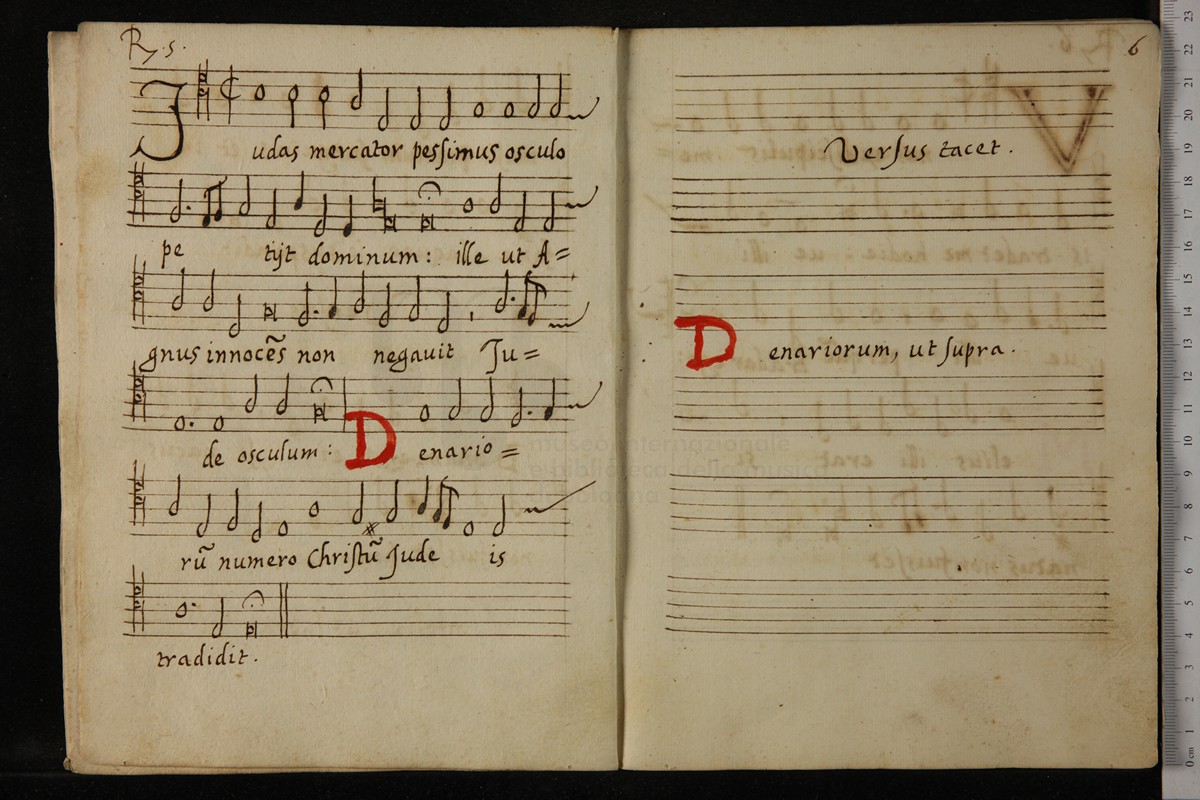 R. 5.
Judas mercator pessimus osculo
pe tijt dominum: ille ut A=
gnus innocẽs non negavit Ju=
de osculum: Denario=
rũ numero Christũ Jude is
tradidit.
6
Versus tacet.
Denariorum, ut supra.
museo internazionale
e biblioteca della musica
di bologna